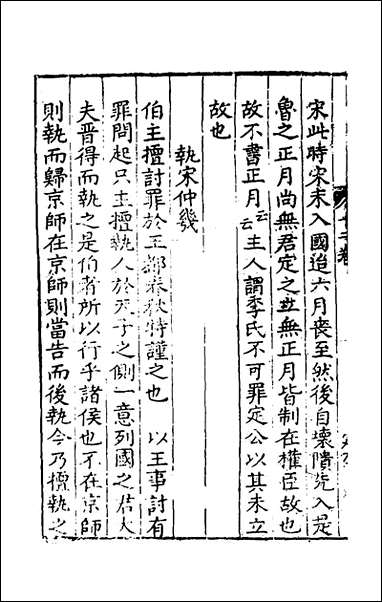 宋此時宋未入國迨六月喪至然後自壞隤先入是
魯之正月尚無君定之無正月皆制在權臣故也
故不書正月云云主人謂季氏不可罪定公以其未立
故也
執宋仲幾
伯主擅討罪於王都春秋特謹之也 以王事討有
罪問起只主擅執人於天子之側一意列國之君大
夫晋得而執之是伯者所以行乎諸侯也不在京師
則執而歸京師在京師則當告而後執今乃擅執之